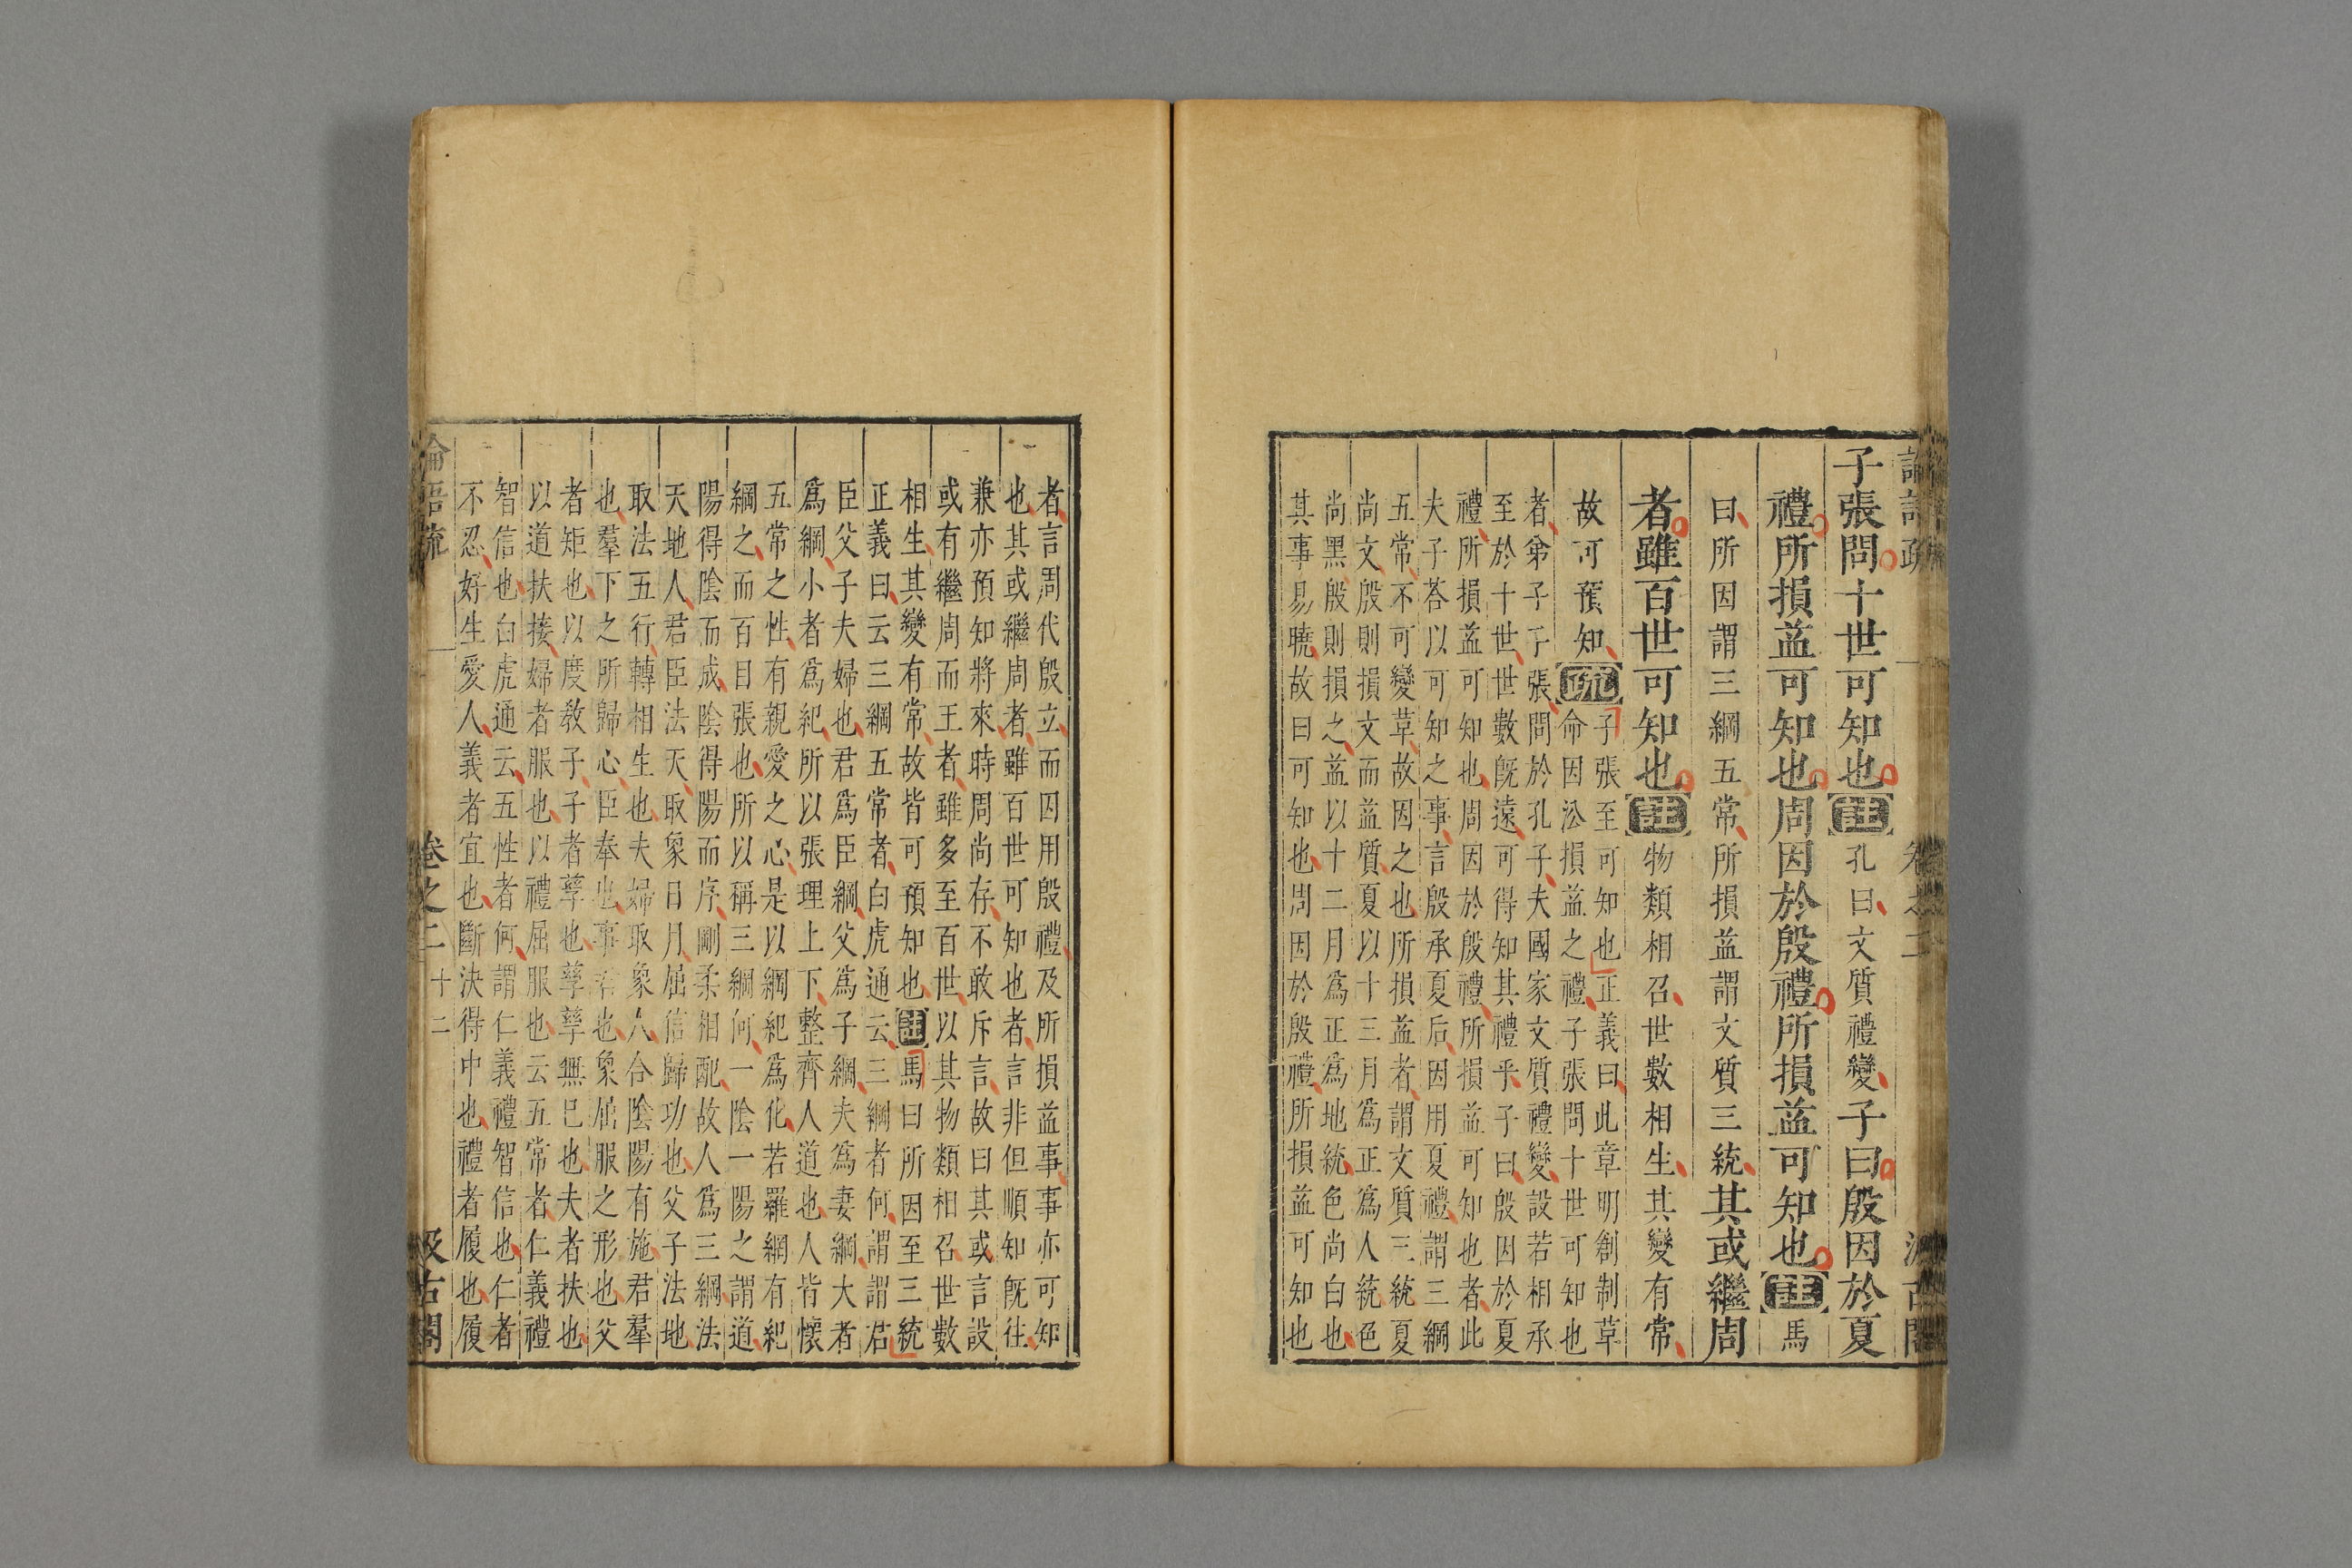 子張問十世可知也註孔曰文質禮變子曰殷因於夏
禮所損益可知也周因於殷禮所損益可知也註馬
曰所因謂三綱五常所損益謂文質三統其或繼周
者雖百世可知也註物類相召世數相生其變有常
故可預知疏子張至可知也正義曰此章明創制革
命因㳂損益之禮子張問十世可知也
者弟子子張問於孔子夫國家文質禮變設若相承
至於十世世數既遠可得知其禮乎子曰殷因於夏
禮所損益可知也周因於殷禮所損益可知也者此
夫子荅以可知之事言殷承夏后因用夏禮謂三綱
五常不可變革故因之也所損益者謂文質三統夏
尚文殷則損文而益質夏以十三月為正為人統色
尚黑殷則損之益以十二月為正為地統色尚白也
其事易曉故曰可知也周因於殷禮所損益可知也
者言周代殷立而因用殷禮及所損益事事亦可知
也其或繼周者雖百世可知也者言非但順知既往
兼亦預知將來時周尚存不敢斥言故曰其或言設
或有繼周而王者雖多至百世以其物類相召世數
相生其變有常故皆可預知也註馬曰所因至三統
正義曰云三綱五常者白虎通云三綱者何謂謂君
臣父子夫婦也君爲臣綱父爲子綱夫爲妻綱大者
爲綱小者爲紀所以張理上下整齊人道也人皆懷
五常之性有親愛之心是以綱紀爲化若羅網有紀
綱之而百目張也所以稱三綱何一陰一陽之謂道
陽得陰而成陰得陽而序剛柔相配故人爲三綱法
天地人君臣法天取象日月屈信歸功也父子法地
取法五行轉相生也夫婦取象人合陰陽有施君羣
也羣下之所歸心臣奉也事君也象屈服之形也父
者矩也以度教子子者孳也孳孳無已也夫者扶也
以道扶接婦者服也以禮屈服也云五常者仁義禮
智信也白虎通云五性者何謂仁義禮智信也仁者
不忍好生愛人義者宜也斷決得中也禮者履也履
論語疏 卷之二 十二 汲古閣